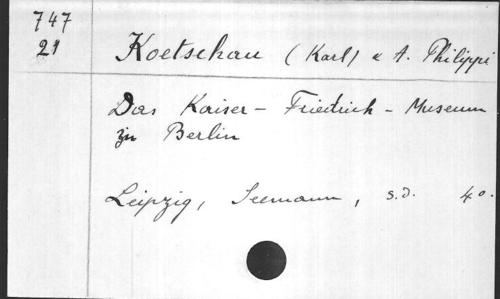 747
21
Koetschau (Karl) & A. Philippi
Das Kaiser - Friedrich - Museum
zu Berlin
Leipzig, Seemann, s.d. 4o.